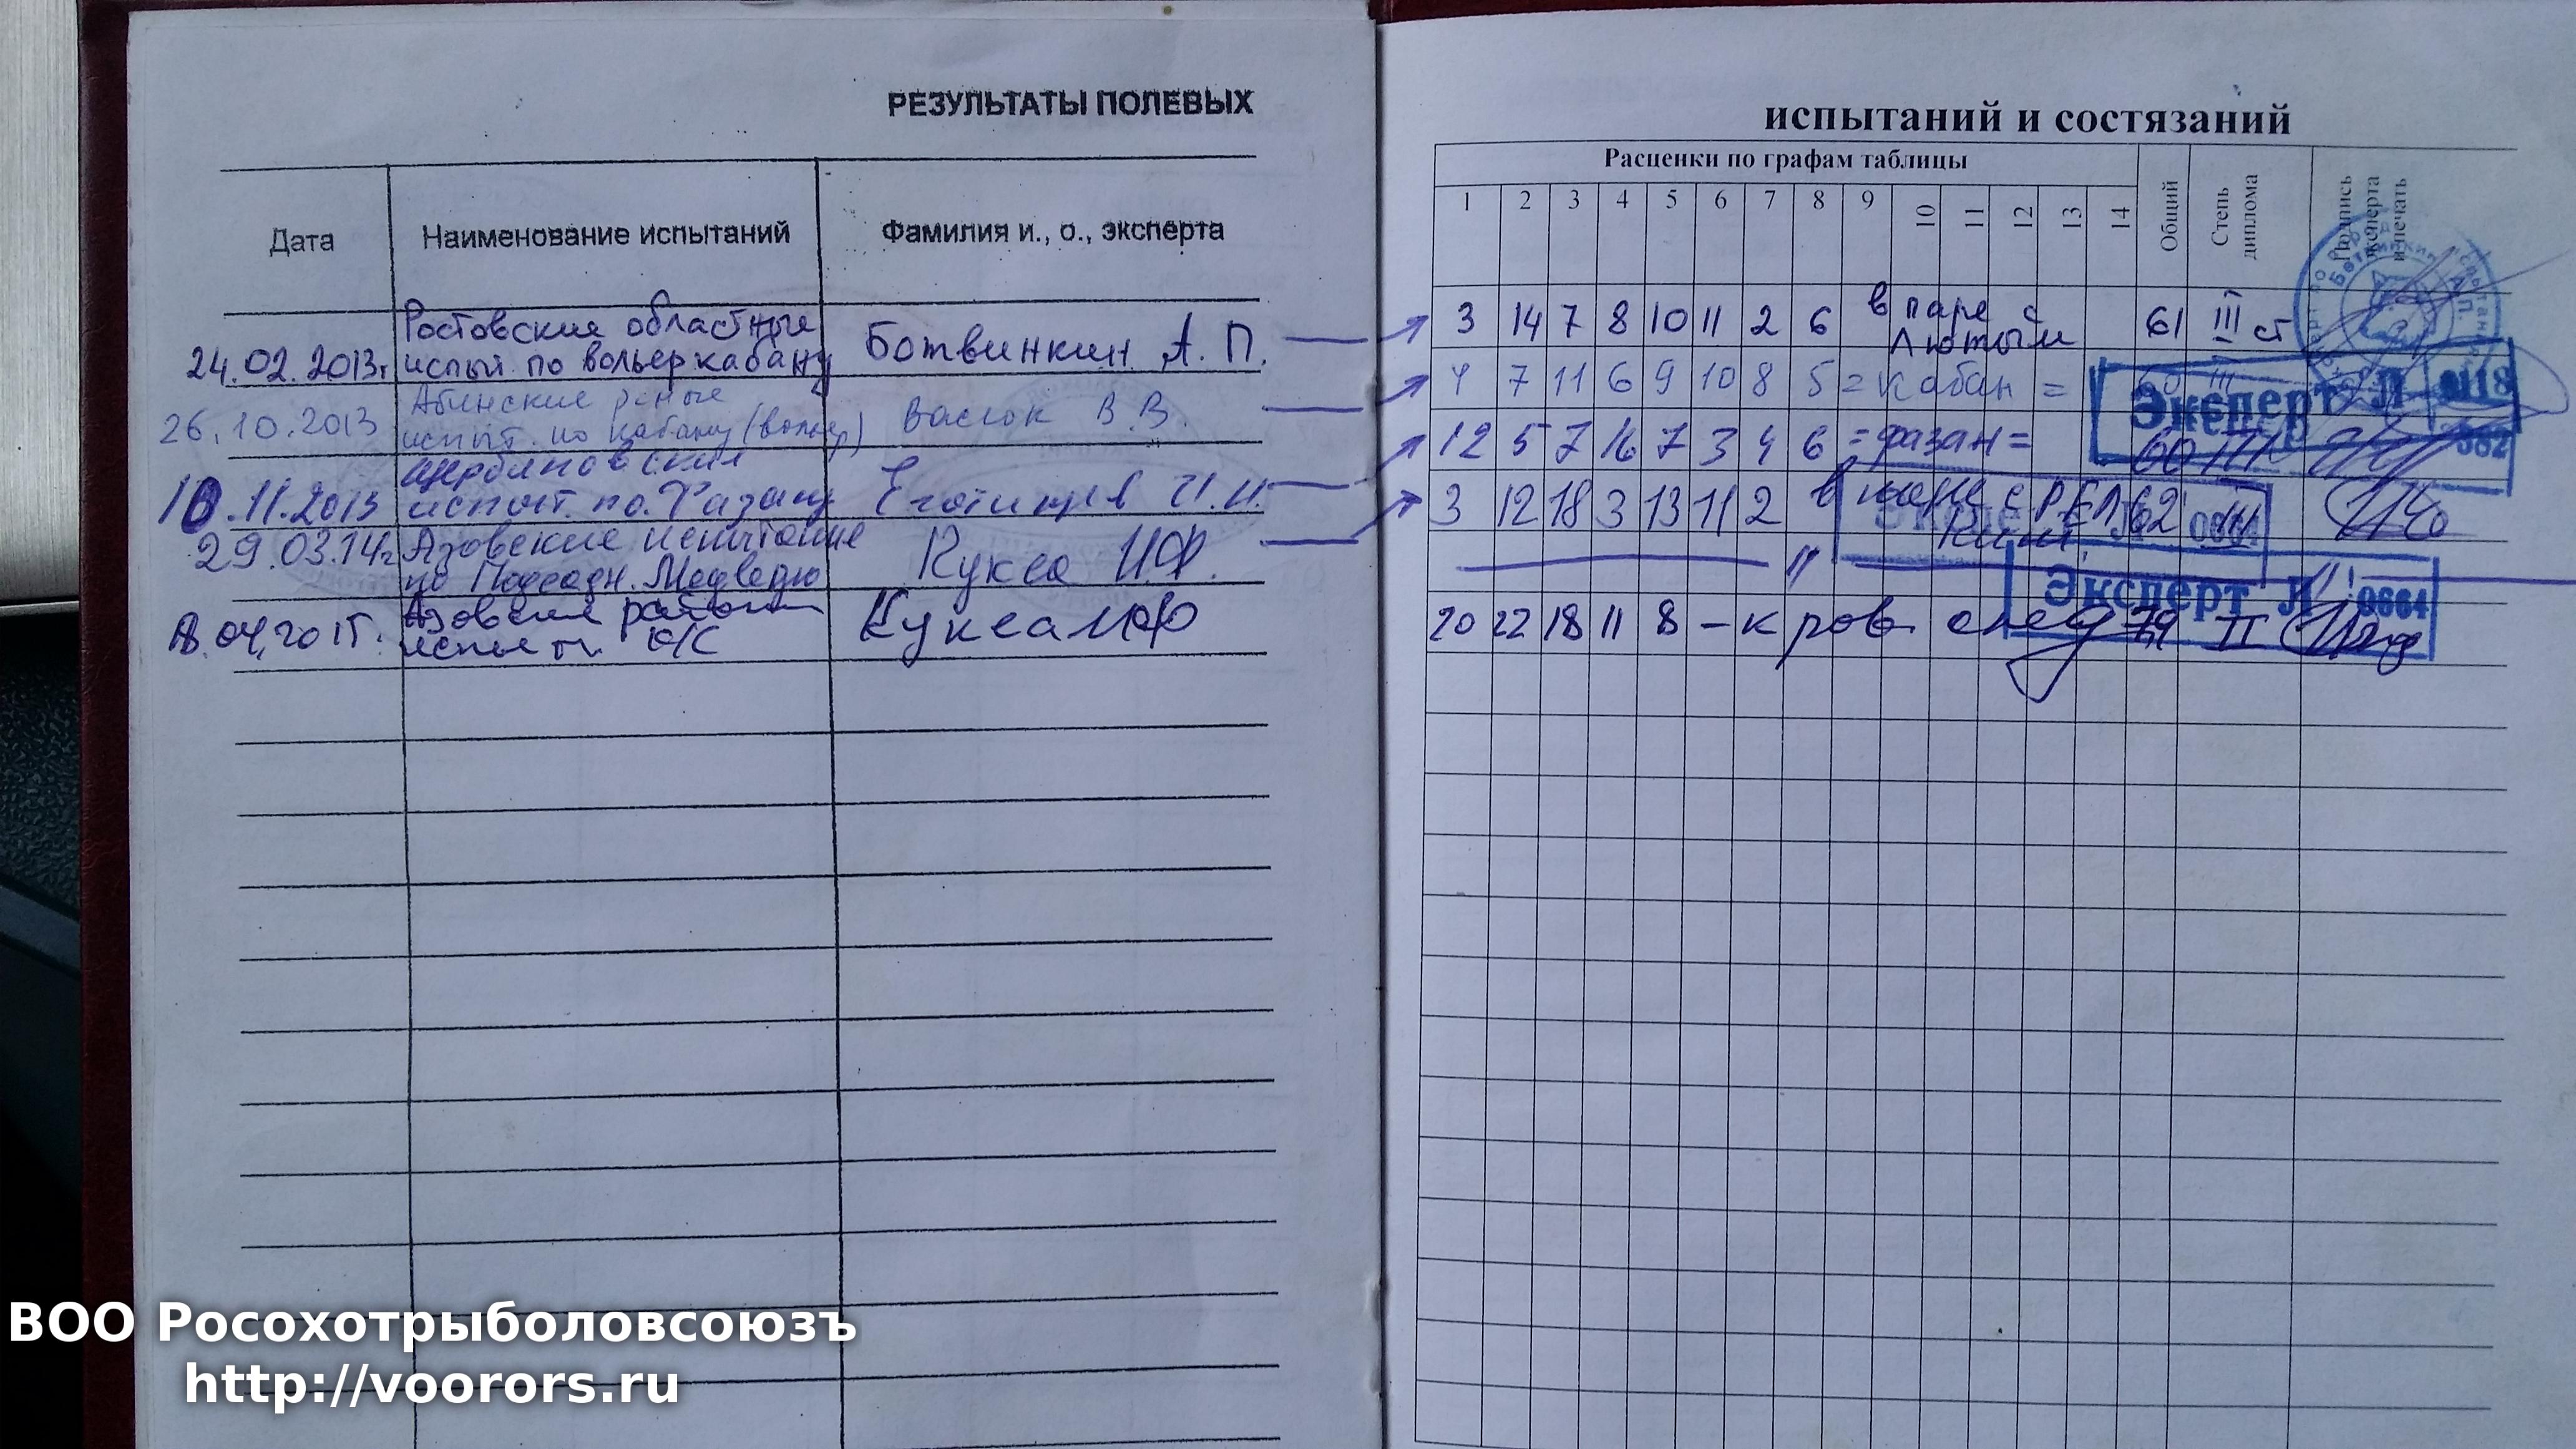 РЕЗУЛЬТАТЫ ПОЛЕВЫХ
Дата Наименование испытаний Фамилия и., о., эксперта
Ростовские областные
24.02.2013г испыт. по вольер кабану Ботвинкин А. П.
Абинские
26.10.2013 испыт. по кабану (вольер) Васюк В.В.
10.11.2013 испыт. по. Фазану И.И.
29.03.14г Азовские испытание
по Подсадн. Медведю Кукса И.Ф.
Азовские
04.2015. Кукса И.Ф
испытаний и состязаний
Расценки по графам таблицы
1 2 3 4 5 6 7 8 9 10 11 12 13 14 Общий Степь диплома Подпись эксперта и печать
3 14 7 8 10 11 2 6 в паре с Лютым 61 III ст
4 7 11 6 9 10 8 5 = Кабан =
12 5 7 16 7 3 4 6 = фазан = 60 III
3 12 18 3 13 11 2 в паре с 62 III
20 22 18 11 8 - кров след 79 II
Эксперт
Эксперт 0664
ВОО Росохотрыболовсоюзъ
http://voorors.ru